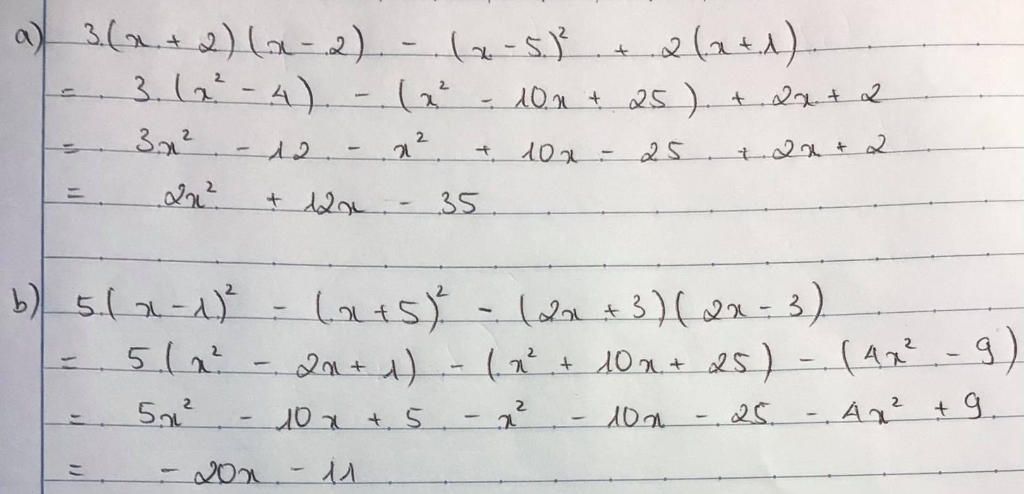 a) 3.(x + 2)(x - 2) - (x - 5)² + 2(x + 1)
= 3.(x² - 4) - (x² - 10x + 25) + 2x + 2
= 3x² - 12 - x² + 10x - 25 + 2x + 2
= 2x² + 12x - 35
b) 5(x - 1)² - (x + 5)² - (2x + 3)(2x - 3)
= 5(x² - 2x + 1) - (x² + 10x + 25) - (4x² - 9)
= 5x² - 10x + 5 - x² - 10x - 25 - 4x² + 9
= - 20x - 11